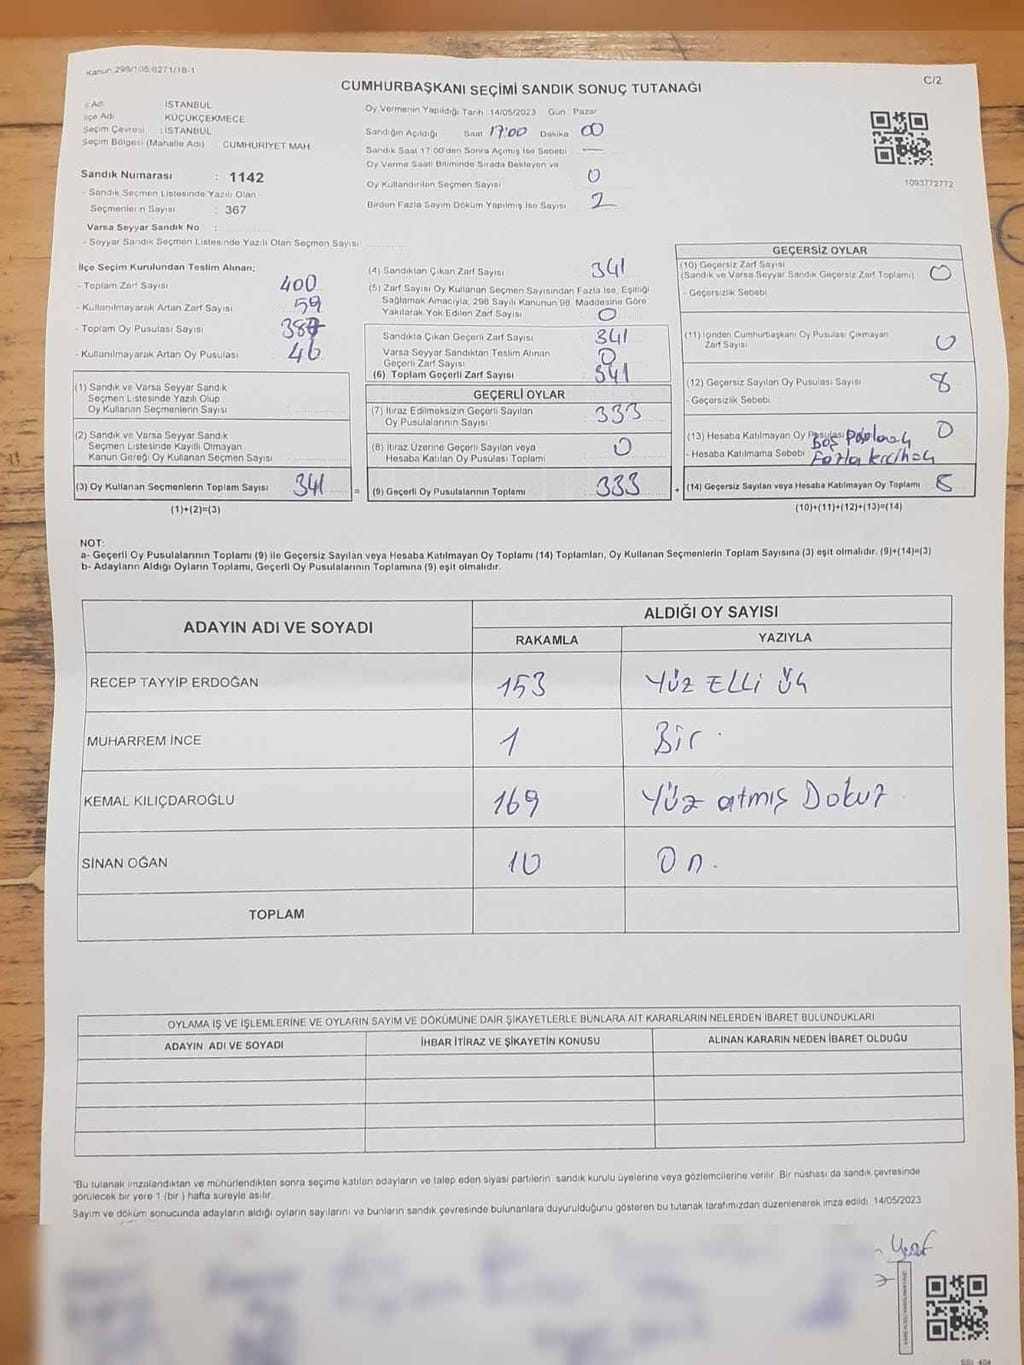 Kanun:299/105,6271/18-1
C/2
CUMHURBAŞKANI SEÇİMİ SANDIK SONUÇ TUTANAĞI
İl Adı İSTANBUL
İlçe Adı KÜÇÜKÇEKMECE
Seçim Çevresi : İSTANBUL
Seçim Bölgesi (Mahalle Adı) CUMHURİYET MAH
Oy Vermenin Yapıldığı Tarih 14/05/2023 Gün Pazar
Sandığın Açıldığı Saat 17:00 Dakika 00
Sandık Saat 17:00'den Sonra Açılmış İse Sebebi —
Oy Verme Saati Bitiminde Sırada Bekleyen ve
Oy Kullandırılan Seçmen Sayısı 0
Birden Fazla Sayım Döküm Yapılmış İse Sayısı 2
1093772772
Sandık Numarası : 1142
- Sandık Seçmen Listesinde Yazılı Olan
Seçmenlerin Sayısı : 367
Varsa Seyyar Sandık No :
- Seyyar Sandık Seçmen Listesinde Yazılı Olan Seçmen Sayısı
İlçe Seçim Kurulundan Teslim Alınan;
- Toplam Zarf Sayısı 400
- Kullanılmayarak Artan Zarf Sayısı 59
- Toplam Oy Pusulası Sayısı
- Kullanılmayarak Artan Oy Pusulası 46
(1) Sandık ve Varsa Seyyar Sandık
Seçmen Listesinde Yazılı Olup
Oy Kullanan Seçmenlerin Sayısı
(2) Sandık ve Varsa Seyyar Sandık
Seçmen Listesinde Kayıtlı Olmayan
Kanun Gereği Oy Kullanan Seçmen Sayısı
(3) Oy Kullanan Seçmenlerin Toplam Sayısı 341 =
(1)+(2)=(3)
(4) Sandıktan Çıkan Zarf Sayısı 341
(5) Zarf Sayısı Oy Kullanan Seçmen Sayısından Fazla İse, Eşitliği
Sağlamak Amacıyla, 298 Sayılı Kanunun 98. Maddesine Göre
Yakılarak Yok Edilen Zarf Sayısı 0
Sandıkta Çıkan Geçerli Zarf Sayısı 341
Varsa Seyyar Sandıktan Teslim Alınan
Geçerli Zarf Sayısı 0
(6) Toplam Geçerli Zarf Sayısı 341
GEÇERLİ OYLAR
(7) İtiraz Edilmeksizin Geçerli Sayılan
Oy Pusulalarının Sayısı 333
(8) İtiraz Üzerine Geçerli Sayılan veya
Hesaba Katılan Oy Pusulası Toplamı 0
(9) Geçerli Oy Pusulalarının Toplamı 333 +
GEÇERSİZ OYLAR
(10) Geçersiz Zarf Sayısı
(Sandık ve Varsa Seyyar Sandık Geçersiz Zarf Toplamı) 0
- Geçersizlik Sebebi
(11) İçinden Cumhurbaşkanı Oy Pusulası Çıkmayan
Zarf Sayısı 0
(12) Geçersiz Sayılan Oy Pusulası Sayısı 8
- Geçersizlik Sebebi
(13) Hesaba Katılmayan Oy Pusulası 0
- Hesaba Katılmama Sebebi
(14) Geçersiz Sayılan veya Hesaba Katılmayan Oy Toplamı
(10)+(11)+(12)+(13)=(14)
NOT:
a- Geçerli Oy Pusulalarının Toplamı (9) ile Geçersiz Sayılan veya Hesaba Katılmayan Oy Toplamı (14) Toplamları, Oy Kullanan Seçmenlerin Toplam Sayısına (3) eşit olmalıdır. (9)+(14)=(3)
b- Adayların Aldığı Oyların Toplamı, Geçerli Oy Pusulalarının Toplamına (9) eşit olmalıdır.
ADAYIN ADI VE SOYADI ALDIĞI OY SAYISI
RAKAMLA YAZIYLA
RECEP TAYYİP ERDOĞAN 153 Yüz Elli Üç
MUHARREM İNCE 1 Bir
KEMAL KILIÇDAROĞLU 169 Yüz atmış Dokuz
SİNAN OĞAN 10 On.
TOPLAM
OYLAMA İŞ VE İŞLEMLERİNE VE OYLARIN SAYIM VE DÖKÜMÜNE DAİR ŞİKAYETLERLE BUNLARA AİT KARARLARIN NELERDEN İBARET BULUNDUKLARI
ADAYIN ADI VE SOYADI İHBAR İTİRAZ VE ŞİKAYETİN KONUSU ALINAN KARARIN NEDEN İBARET OLDUĞU
*Bu tutanak imzalandıktan ve mühürlendikten sonra seçime katılan adayların ve talep eden siyasi partilerin sandık kurulu üyelerine veya gözlemcilerine verilir. Bir nüshası da sandık çevresinde
görülecek bir yere 1 (bir) hafta süreyle asılır.
Sayım ve döküm sonucunda adayların aldığı oyların sayılarını ve bunların sandık çevresinde bulunanlara duyurulduğunu gösteren bu tutanak tarafımızdan düzenlenerek imza edildi. 14/05/2023